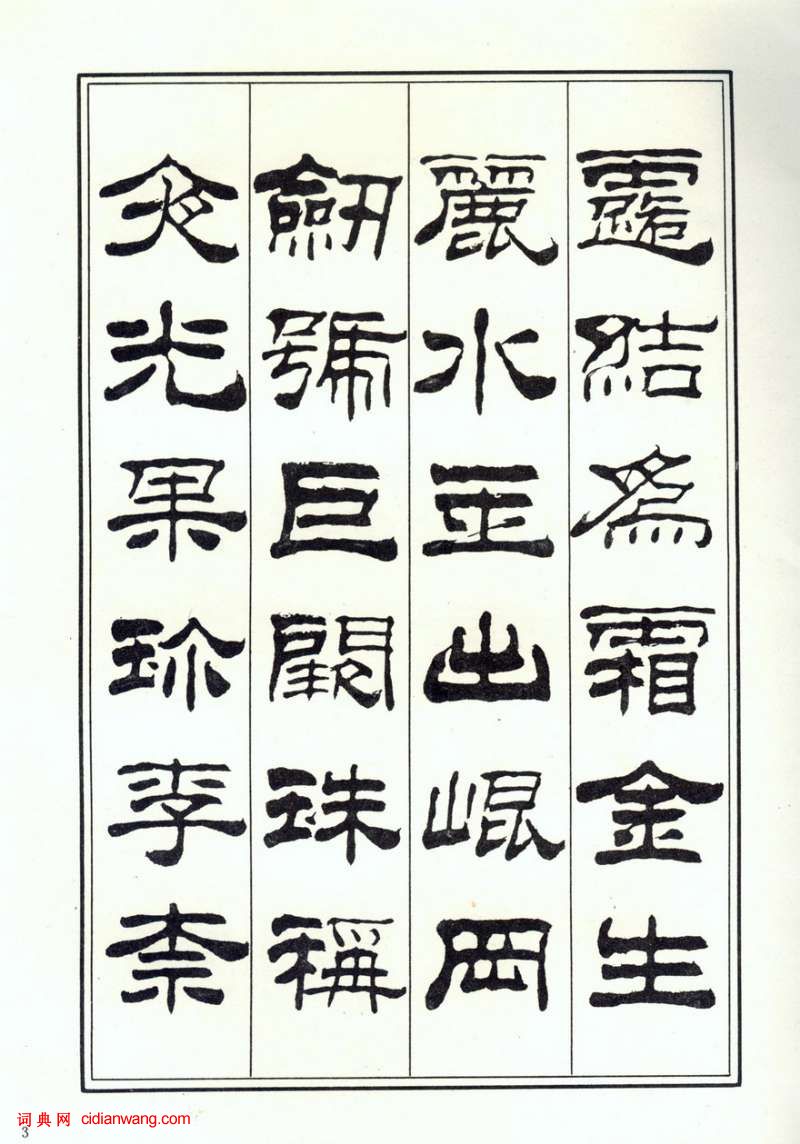 露結爲霜金生
麗水玉出崐岡
劒號巨闕珠稱
夜光果珎李柰
词典网 cidianwang.com
3